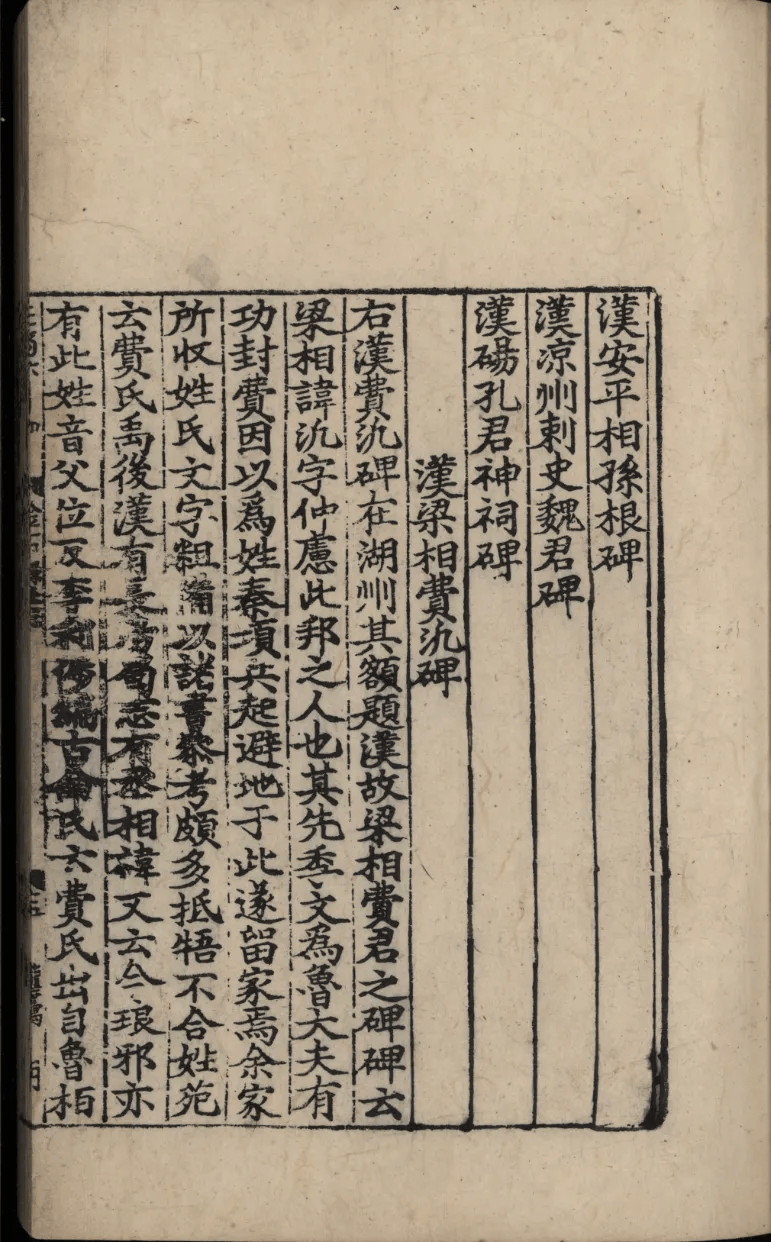 漢安平相孫根碑
漢凉州刺史魏君碑
漢碭孔君神祠碑
漢梁相費汎碑
右漢費汎碑在湖州其額題漢故梁相費君之碑碑云
梁相諱汎字仲慮此邦之人也其先季文為魯大夫有
功封費因以爲姓秦項兵起避地于此遂留家焉余家
所收姓氏文字粗備以諸書叅考頗多抵牾不合姓苑
云費氏禹後漢有長房蜀志有丞相禕又云今琅邪亦
有此姓音父位反李利涉編古命氏云費氏出自魯桓